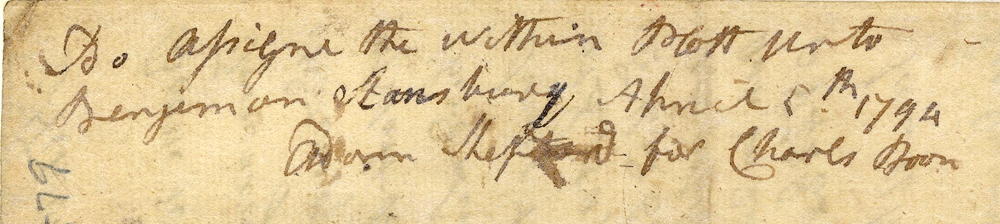 Do Assigne the within Plott unto
Benjeman Stansbury April 5th 1794
Adam Shepard for Charls Boon
677